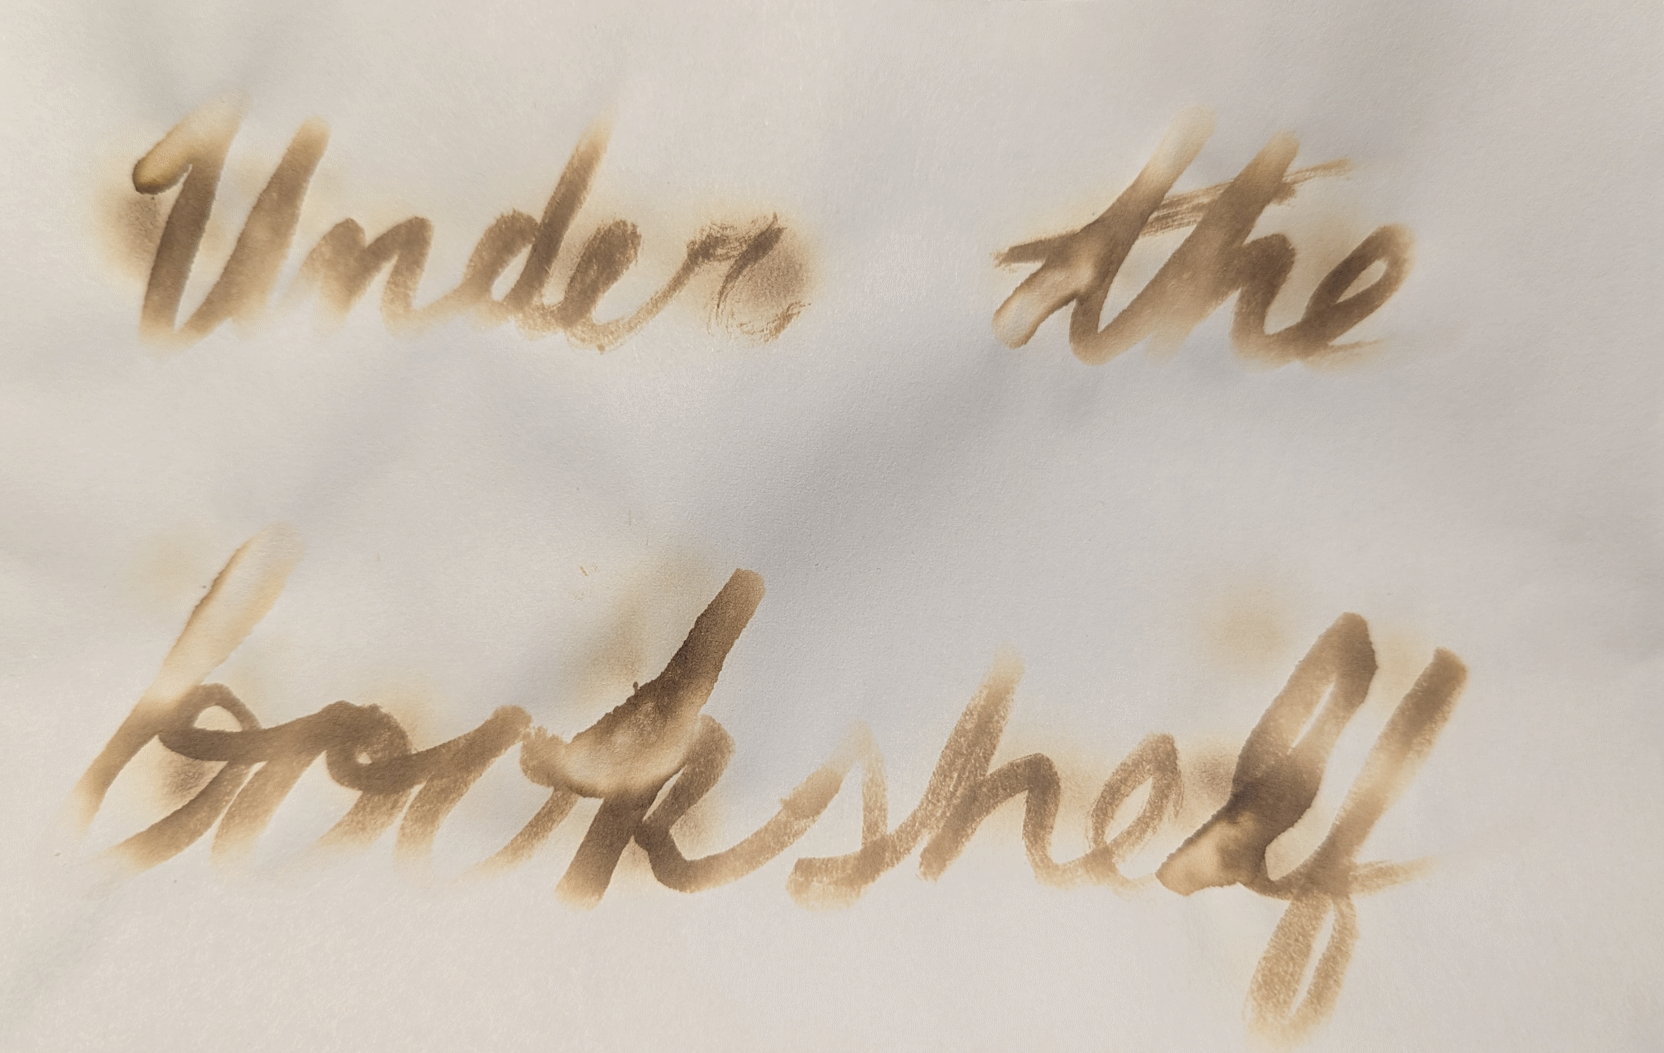 Under the
bookshelf